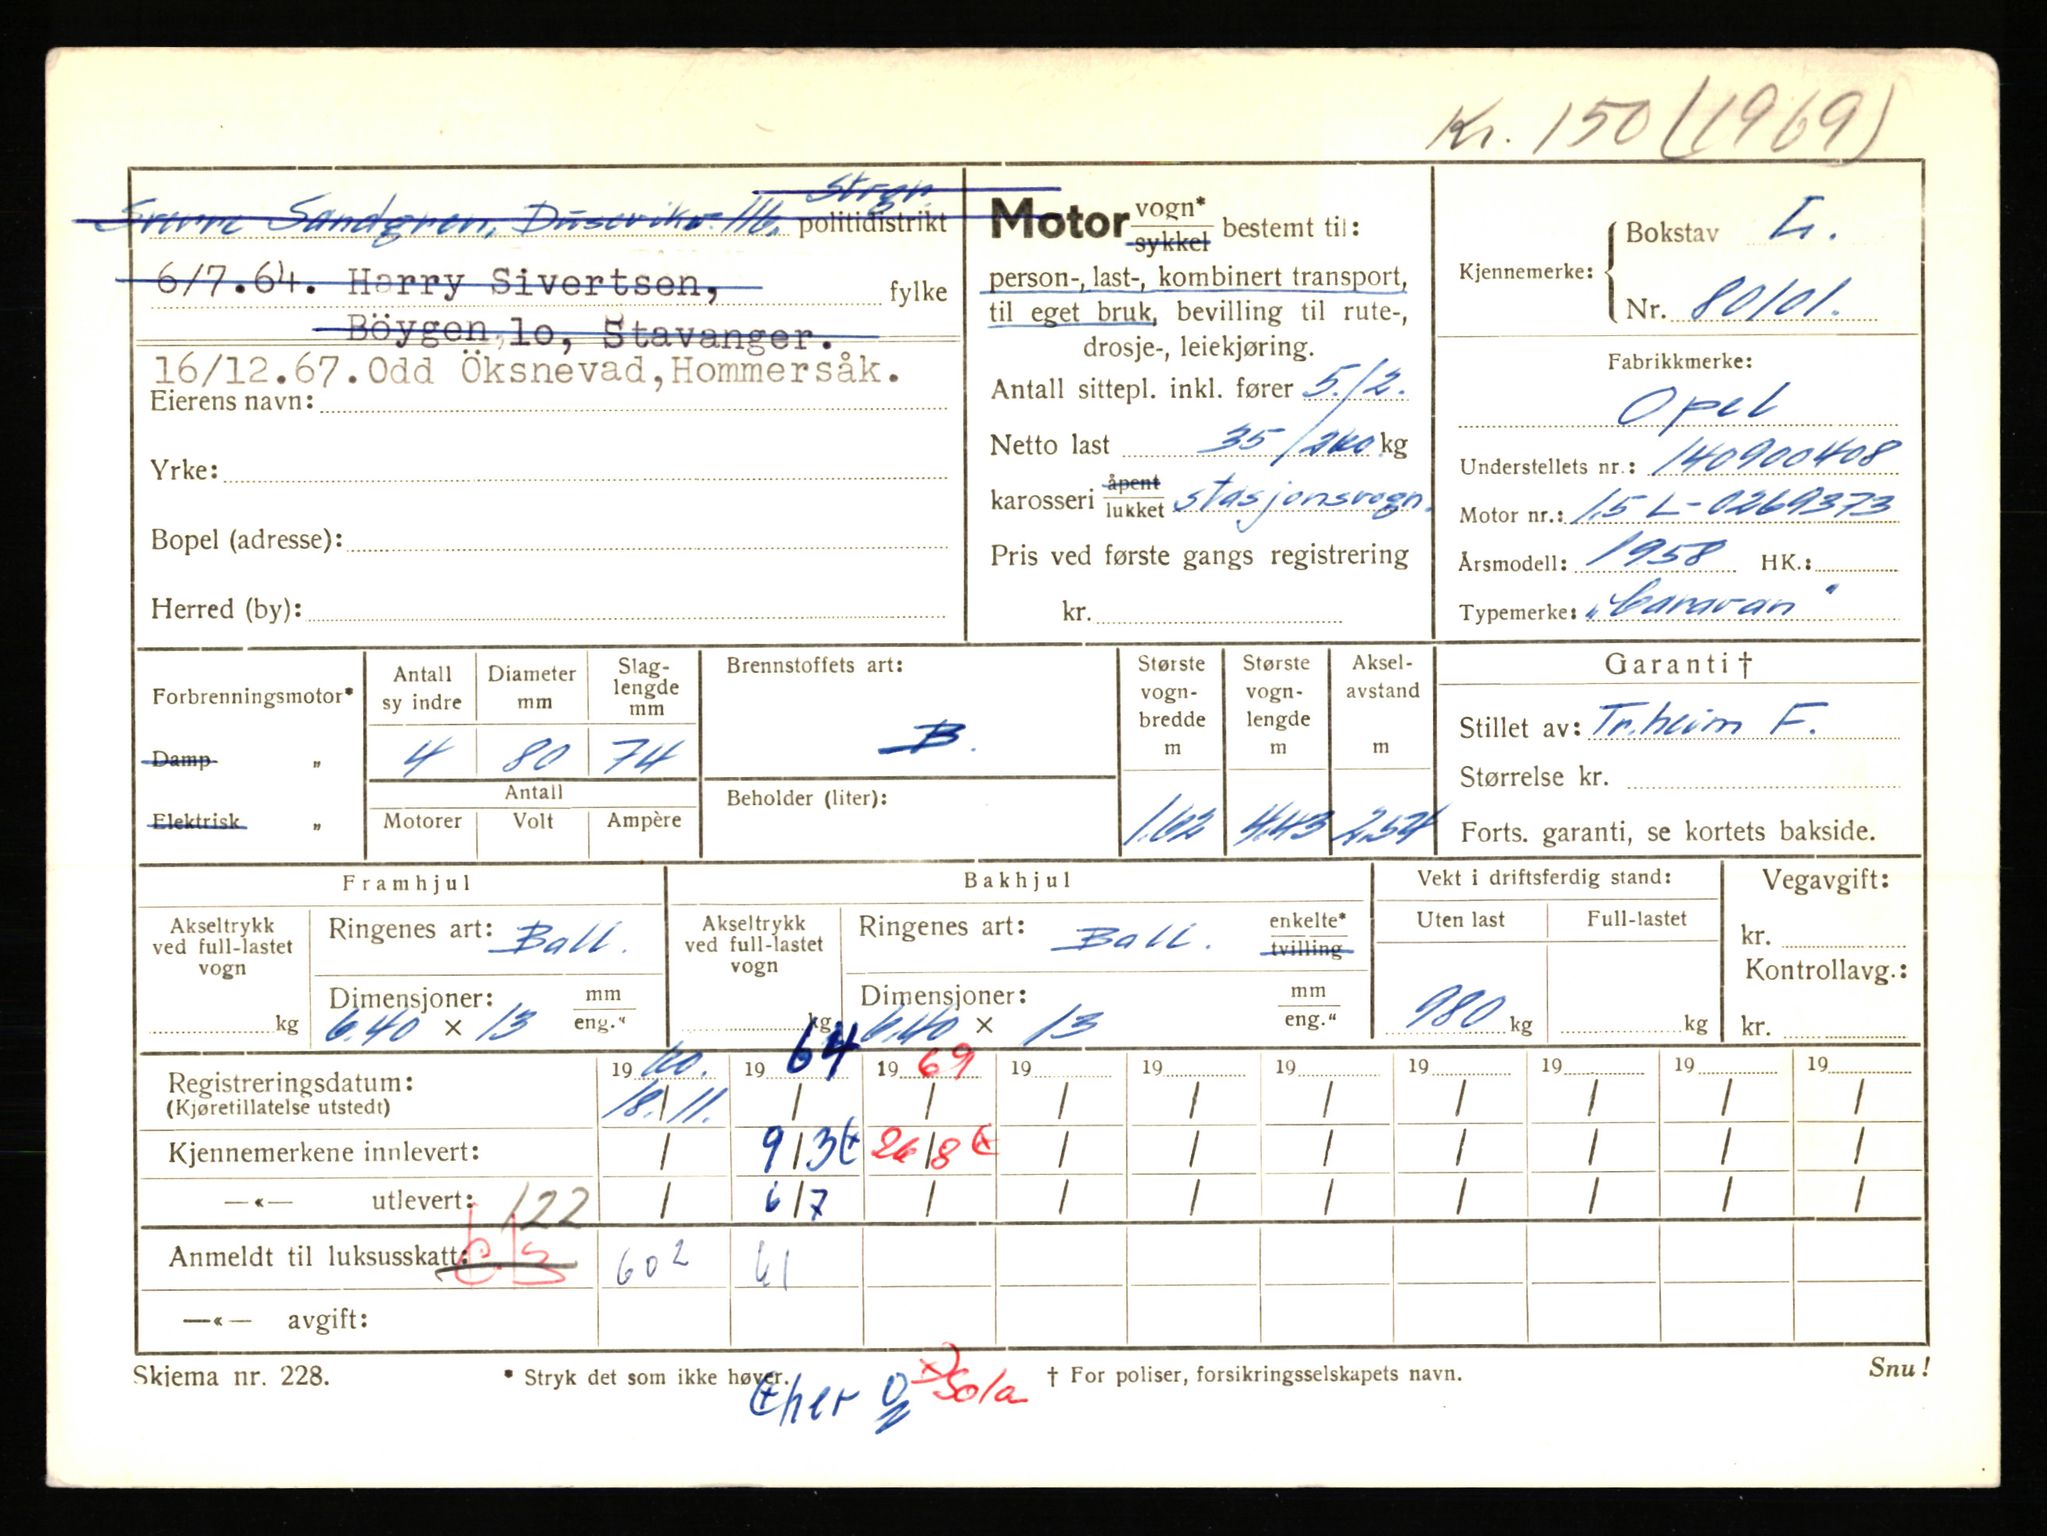 Kr. 150 (1969)
Strgr.
Sverre Sandgren, politidistrikt
6/7.64. Harry Sivertsen,
fylke
Böygen, 10, Stavanger.
16/12.67. Odd Öksnevad, Hommersåk.
Eierens navn:
Yrke:
Bopel (adresse):
Herred (by):
Motor vogn* sykkel bestemt til:
person-, last-, kombinert transport,
til eget bruk, bevilling til rute-,
drosje-, leiekjøring.
Antall sittepl. inkl. fører 5./2.
Netto last 35/240 kg
karosseri åpent lukket stasjonsvogn.
Pris ved første gangs registrering
kr.
Bokstav L.
Kjennemerke:
Nr. 80101.
Fabrikkmerke:
Opel
Understellets nr.: 140900408
Motor nr.: 1.5 L-0269373
Årsmodell: 1958 HK.:
Typemerke: „Caravan"
Forbrenningsmotor*
Damp „
Elektrisk „
Antall sy indre
Diameter mm
Slag-
lengde
mm
4 80 74
Antall
Motorer Volt Ampère
Brennstoffets art:
B.
Beholder (liter):
Største
vogn-
bredde
m
1.62
Største
vogn-
lengde
m
4.43
Aksel-
avstand
m
2.54
Garanti †
Stillet av: Tr.heim F.
Størrelse kr.
Forts. garanti, se kortets bakside.
Framhjul
Akseltrykk
ved full-lastet
vogn
kg
Ringenes art: Ball.
Dimensjoner: mm
6.40 × 13 eng."
Bakhjul
Akseltrykk
ved full-lastet
vogn
kg
Ringenes art: Ball. enkelte*
tvilling
Dimensjoner: mm
6.40 × 13 eng."
Vekt i driftsferdig stand:
Uten last Full-lastet
980 kg kg
Vegavgift:
kr.
Kontrollavg.:
kr.
Registreringsdatum: 19 60. 19 64 19 69 19 19 19 19 19 19 19
(Kjøretillatelse utstedt) 18/11. / / / / / / / / /
Kjennemerkene innlevert: / 9/3 26/8 / / / / / / /
—«— utlevert: 122 / 6/7 / / / / / / / /
Anmeldt til luksusskatt: 602 61
—«— avgift:
Skjema nr. 228.
* Stryk det som ikke høver.
† For poliser, forsikringsselskapets navn.
Snu!
x) Sola